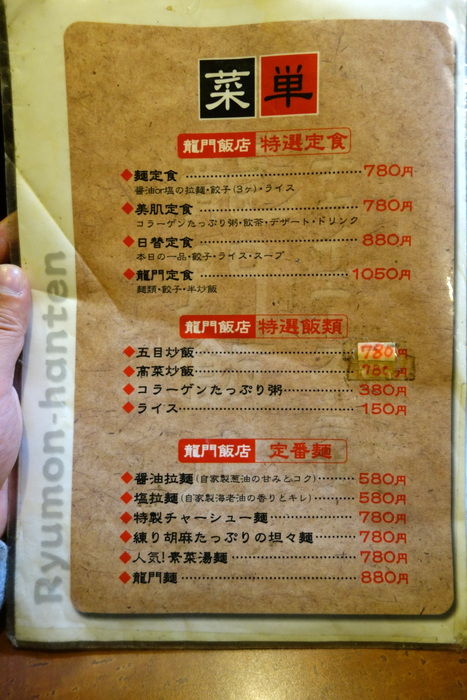 菜単
龍門飯店 特選定食
◆麺定食 ………… 780円
醤油or塩の拉麺・餃子(3ヶ)・ライス
◆美肌定食 ………… 780円
コラーゲンたっぷり粥・飲茶・デザート・ドリンク
◆日替定食 ………… 880円
本日の一品・餃子・ライス・スープ
◆龍門定食 ………… 1050円
麺類・餃子・半炒飯
龍門飯店 特選飯類
◆五目炒飯 ………… 780円
◆高菜炒飯 ………… 780円
◆コラーゲンたっぷり粥 ………… 380円
◆ライス ………… 150円
龍門飯店 定番麺
◆醤油拉麺(自家製葱油の甘みとコク) ………… 580円
◆塩拉麺(自家製海老油の香りとキレ) ………… 580円
◆特製チャーシュー麺 ………… 780円
◆練り胡麻たっぷりの坦々麺 ………… 780円
◆人気!素菜湯麺 ………… 780円
◆龍門麺 ………… 880円
Ryumon-hanten